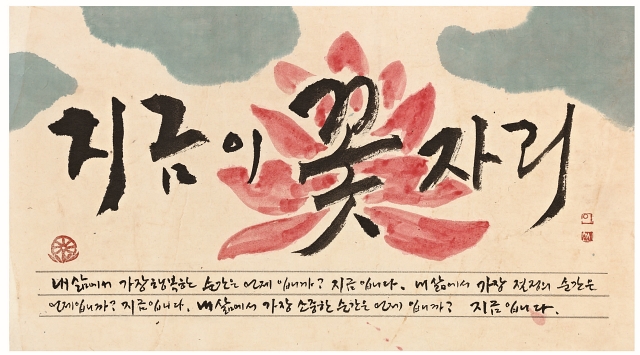 지금이 꽃자리
내 삶에서 가장 행복한 순간은 언제 입니까? 지금입니다. 내 삶에서 가장 절정의 순간은
언제입니까? 지금입니다. 내 삶에서 가장 소중한 순간은 언제 입니까? 지금입니다.